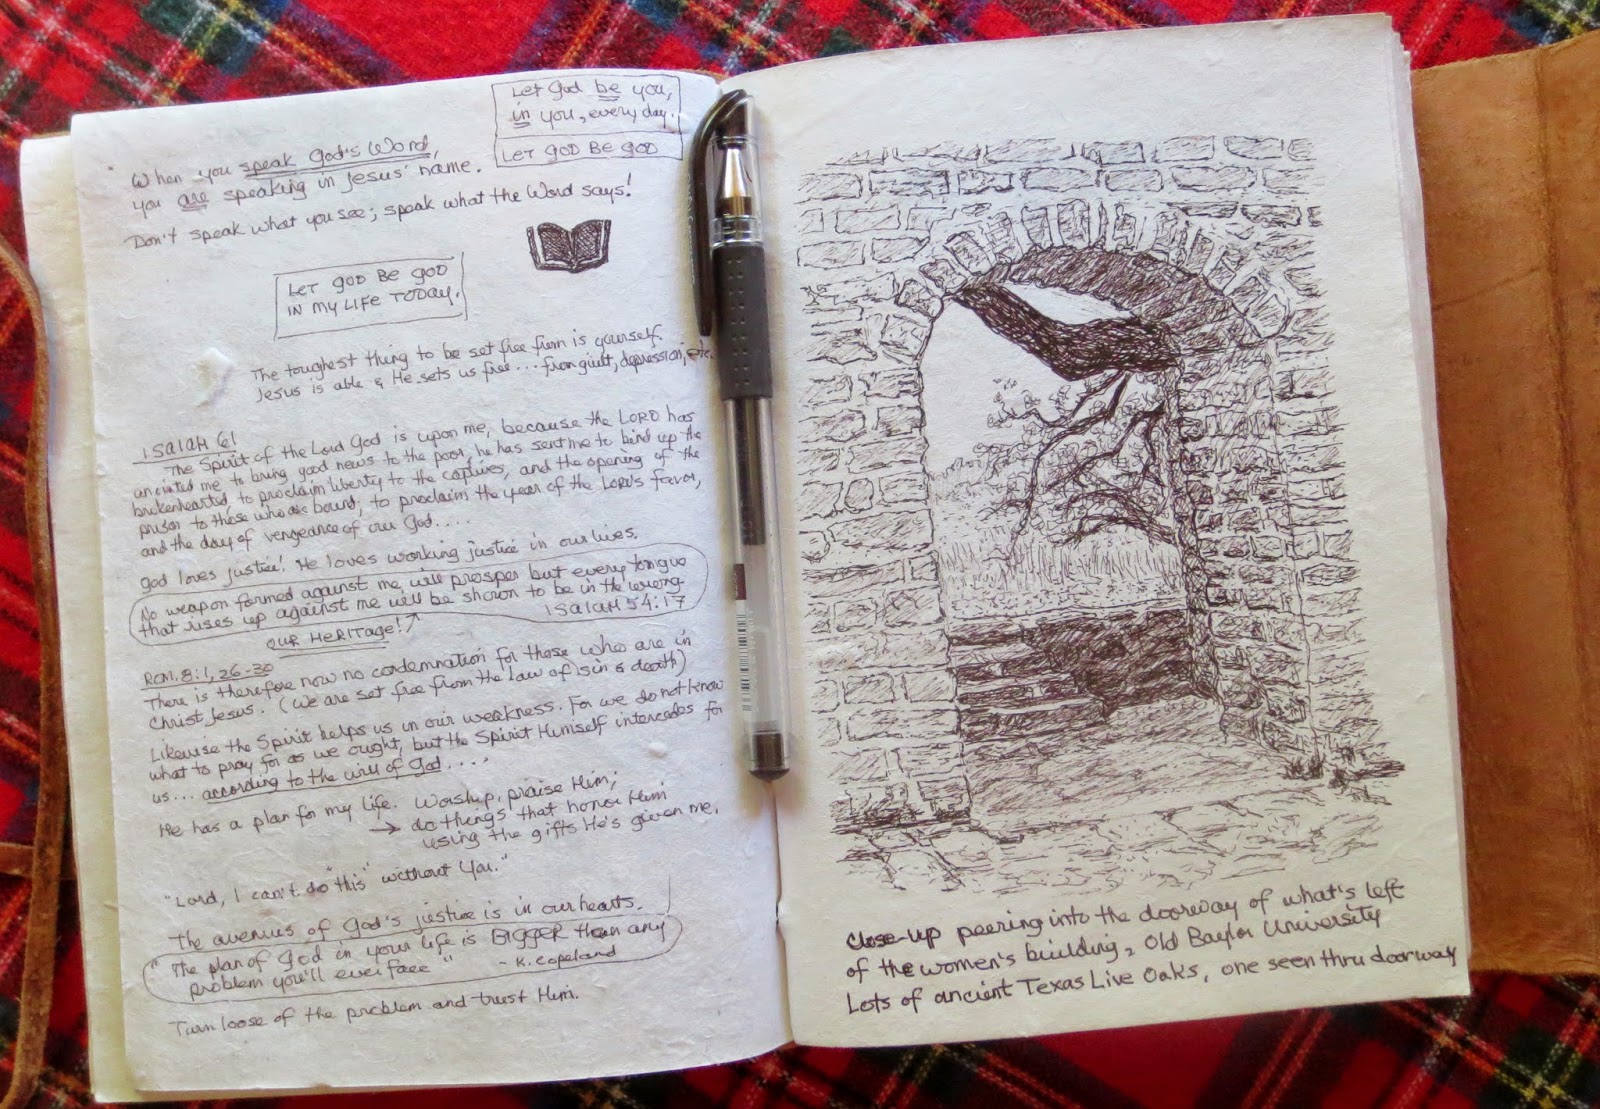 Let God be you,
in you, every day.
LET GOD BE GOD
"When you speak God's Word,
you are speaking in Jesus' name.
Don't speak what you see; speak what the Word says!
LET GOD BE GOD
IN MY LIFE TODAY.
The toughest thing to be set free from is yourself.
Jesus is able & He sets us free... from guilt, depression, etc.
ISAIAH 61
The Spirit of the Lord God is upon me, because the LORD has
anointed me to bring good news to the poor, he has sent me to bind up the
brokenhearted, to proclaim liberty to the captives, and the opening of the
prison to those who are bound; to proclaim the year of the LORD's favor,
and the day of vengeance of our God....
God loves justice! He loves working justice in our lives.
No weapon formed against me will prosper but every tongue
that rises up against me will be shown to be in the wrong
ISAIAH 54:17
OUR HERITAGE!
ROM. 8:1, 26-30
There is therefore now no condemnation for those who are in
Christ Jesus. (We are set free from the law of sin & death)
Likewise the Spirit helps us in our weakness. For we do not know
what to pray for as we ought, but the Spirit Himself intercedes for
us... according to the will of God.....
He has a plan for my life. Worship, praise Him;
→ do things that honor Him
using the gifts He's given me.
"Lord, I can't do "this" without You."
The avenues of God's justice is in our hearts.
"The plan of God in your life is BIGGER than any
problem you'll ever face" - K. Copeland
Turn loose of the problem and trust Him.
Close-up peering into the doorway of what's left
of the women's building, Old Baylor University
Lots of ancient Texas Live Oaks, one seen thru doorway